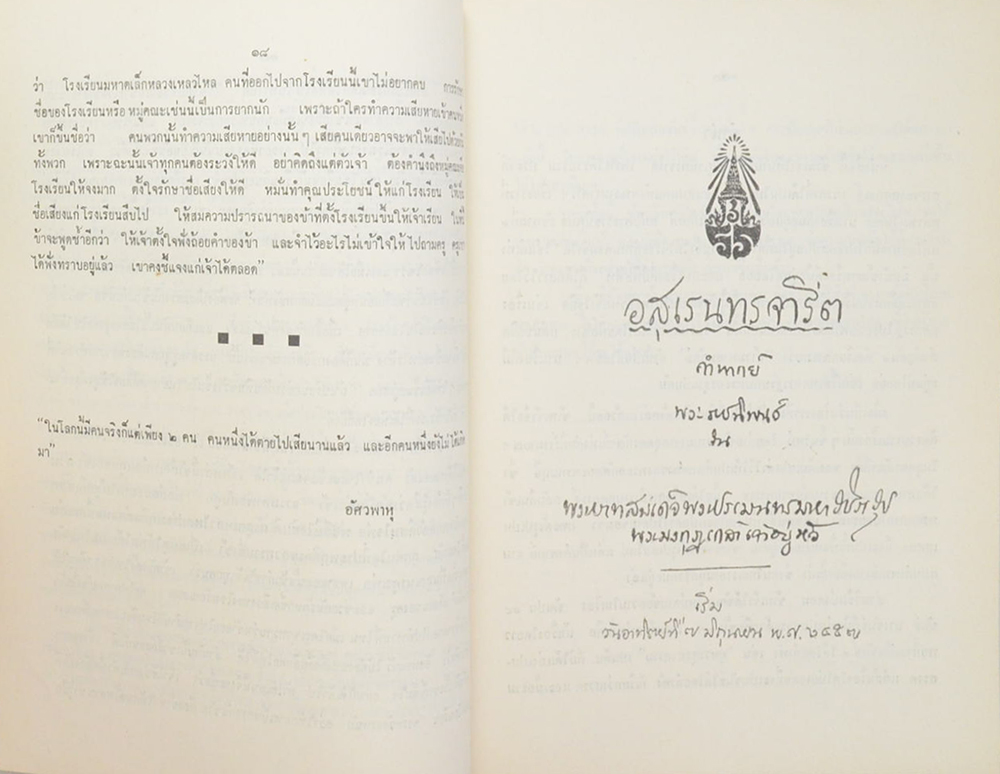 ๑๘
ว่า โรงเรียนมหาดเล็กหลวงเหลวไหล คนที่ออกไปจากโรงเรียนนี้เขาไม่อยากคบ
ชื่อของโรงเรียนหรือ หมู่คณะเช่นนี้เป็นการยากนัก เพราะถ้าใครทำความเสียหายเข้า
เขาก็ขึ้นชื่อว่า คนพวกนั้นทำความเสียหายอย่างนั้น ๆ เสียคนเดียวอาจจะพาให้เสีย
ทั้งพวก เพราะฉะนั้นเจ้าทุกคนต้องระวังให้ดี อย่าคิดถึงแต่ตัวเจ้า ต้องคำนึงถึง
โรงเรียนให้จงมาก ตั้งใจรักษาชื่อเสียงให้ดี หมั่นทำคุณประโยชน์ให้แก่โรงเรียน
ชื่อเสียงแก่โรงเรียนสืบไป ให้สมความปรารถนาของข้าที่ตั้งโรงเรียนขึ้นให้เจ้าเรียน
ข้าจะพูดซ้ำอีกว่า ให้เจ้าตั้งใจฟังถ้อยคำของข้า และจำไว้อะไรไม่เข้าใจให้ไปถามครู
ได้ฟังทราบอยู่แล้ว เขาคงชี้แจงแก่เจ้าได้ตลอด”
“ในโลกนี้มีคนจริงก็แต่เพียง ๒ คน คนหนึ่งได้ตายไปเสียนานแล้ว และอีกคนหนึ่งยังไม่ได้
มา”
อัศวพาหุ
อสุเรนทรจารีต
คำพากย์
พระราชนิพนธ์
ใน
พระบาทสมเด็จพระปรเมนทรมหาวชิราวุธ
พระมงกุฎเกล้าเจ้าอยู่หัว
เริ่ม
วันอาทิตย์ที่ ๗ มิถุนายน พ.ศ. ๒๔๕๗